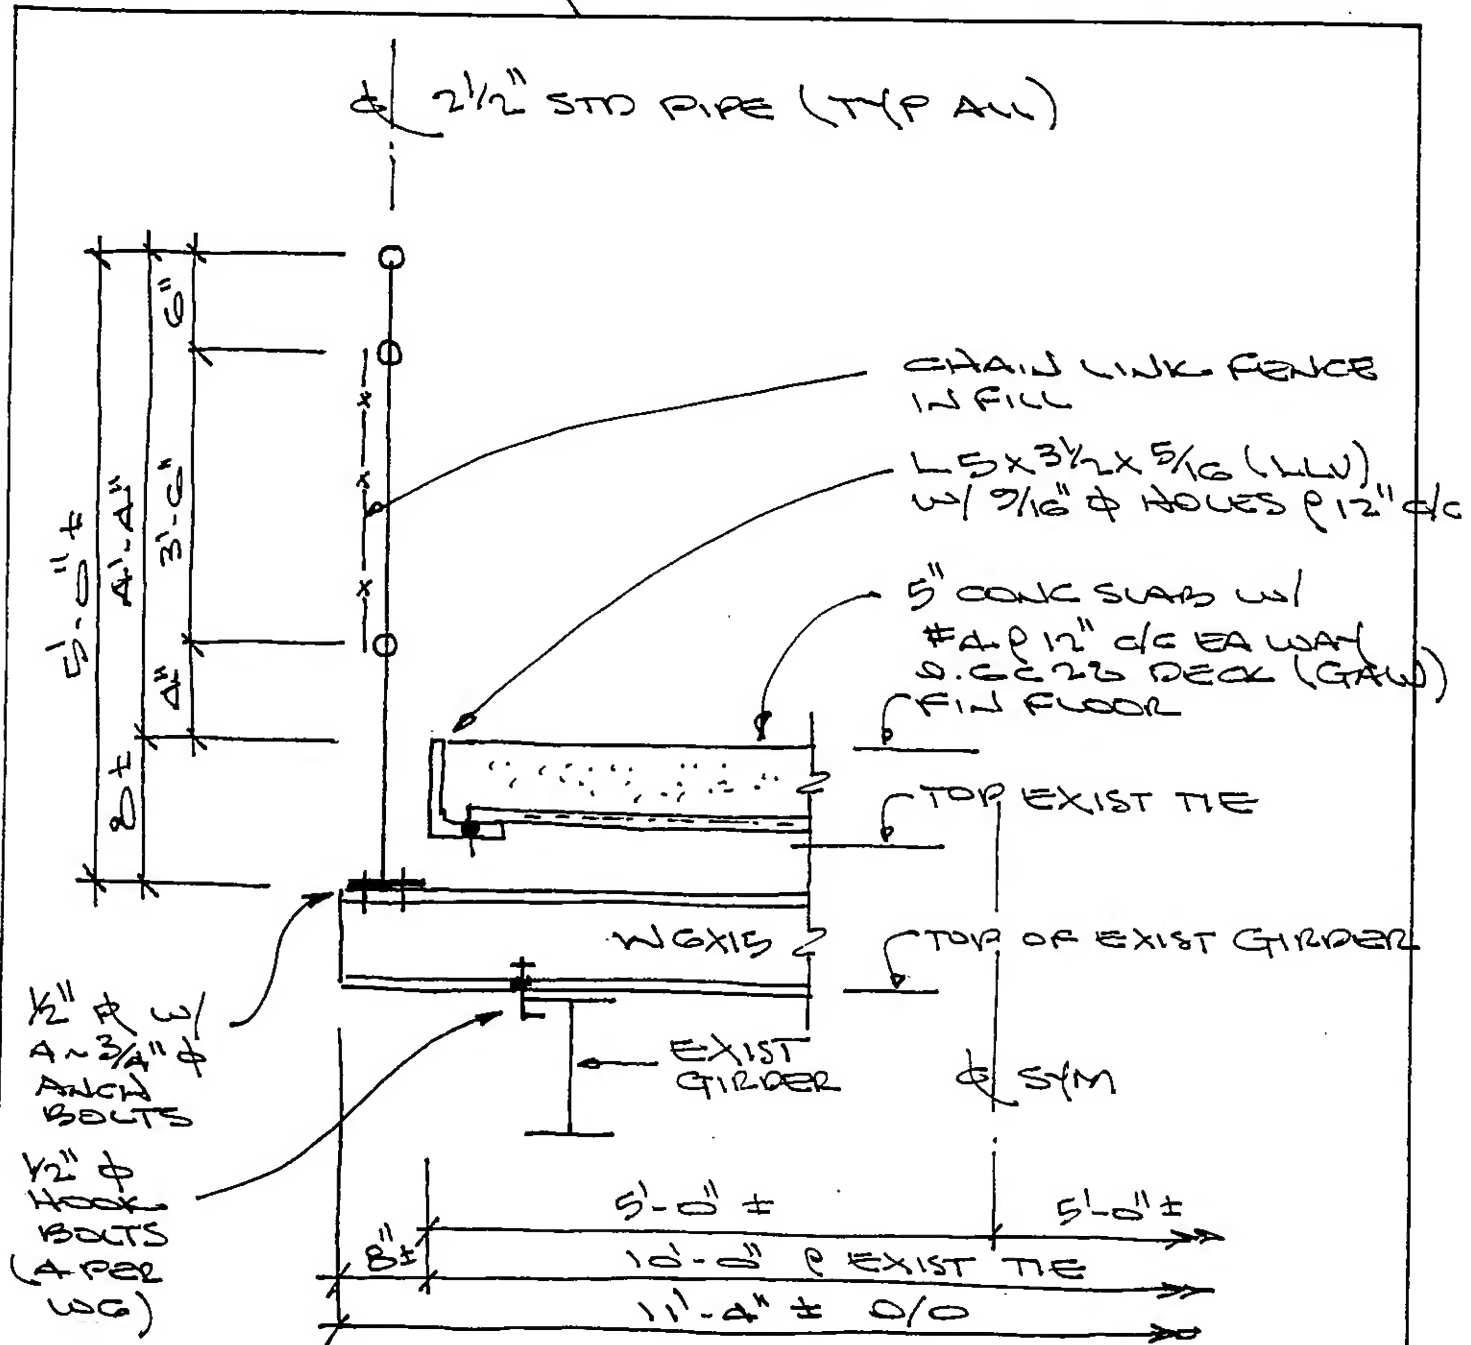 ℄ 2 1/2" STD PIPE (TYP ALL)
6"
3'-6"
4"
4'-4"
8 ±
5'-0" ±
CHAIN LINK FENCE
INFILL
L 5 X 3 1/2 X 5/16 (LLV)
W/ 9/16" ϕ HOLES @ 12" c/c
5" CONC SLAB W/
#4 @ 12" c/c EA WAY
DECK (GALV)
FIN FLOOR
TOP EXIST TIE
W6X15
TOP OF EXIST GIRDER
1/2" ℙ W/
4 ~ 3/4" ϕ
ANCH
BOLTS
EXIST
GIRDER
℄ SYM
1/2" ϕ
HOOK
BOLTS
(4 PER
W6)
5'-0" ±
5'-0" ±
8" ±
10'-0" @ EXIST TIE
11'-4" ± O/O